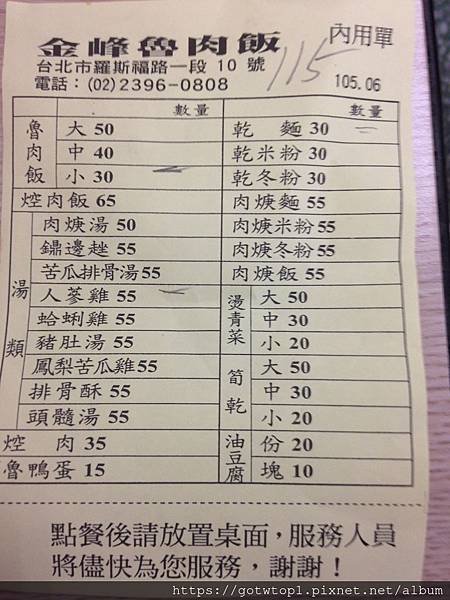 金峰魯肉飯
內用單
台北市羅斯福路一段 10 號
115
電話：(02) 2396-0808
105.06
數量 數量
魯肉飯 大 50 乾 麵 30
中 40 乾米粉 30
小 30 乾冬粉 30
焢肉飯 65 肉焿麵 55
湯類 肉焿湯 50 肉焿米粉 55
鼎邊趖 55 肉焿冬粉 55
苦瓜排骨湯 55 肉焿飯 55
人蔘雞 55 燙青菜 大 50
蛤蜊雞 55 中 30
豬肚湯 55 小 20
鳳梨苦瓜雞 55 筍乾 大 50
排骨酥 55 中 30
頭髓湯 55 小 20
焢 肉 35 油豆腐 份 20
魯鴨蛋 15 塊 10
點餐後請放置桌面，服務人員
將儘快為您服務，謝謝！
https://gotwtop1.pixnet.net/album